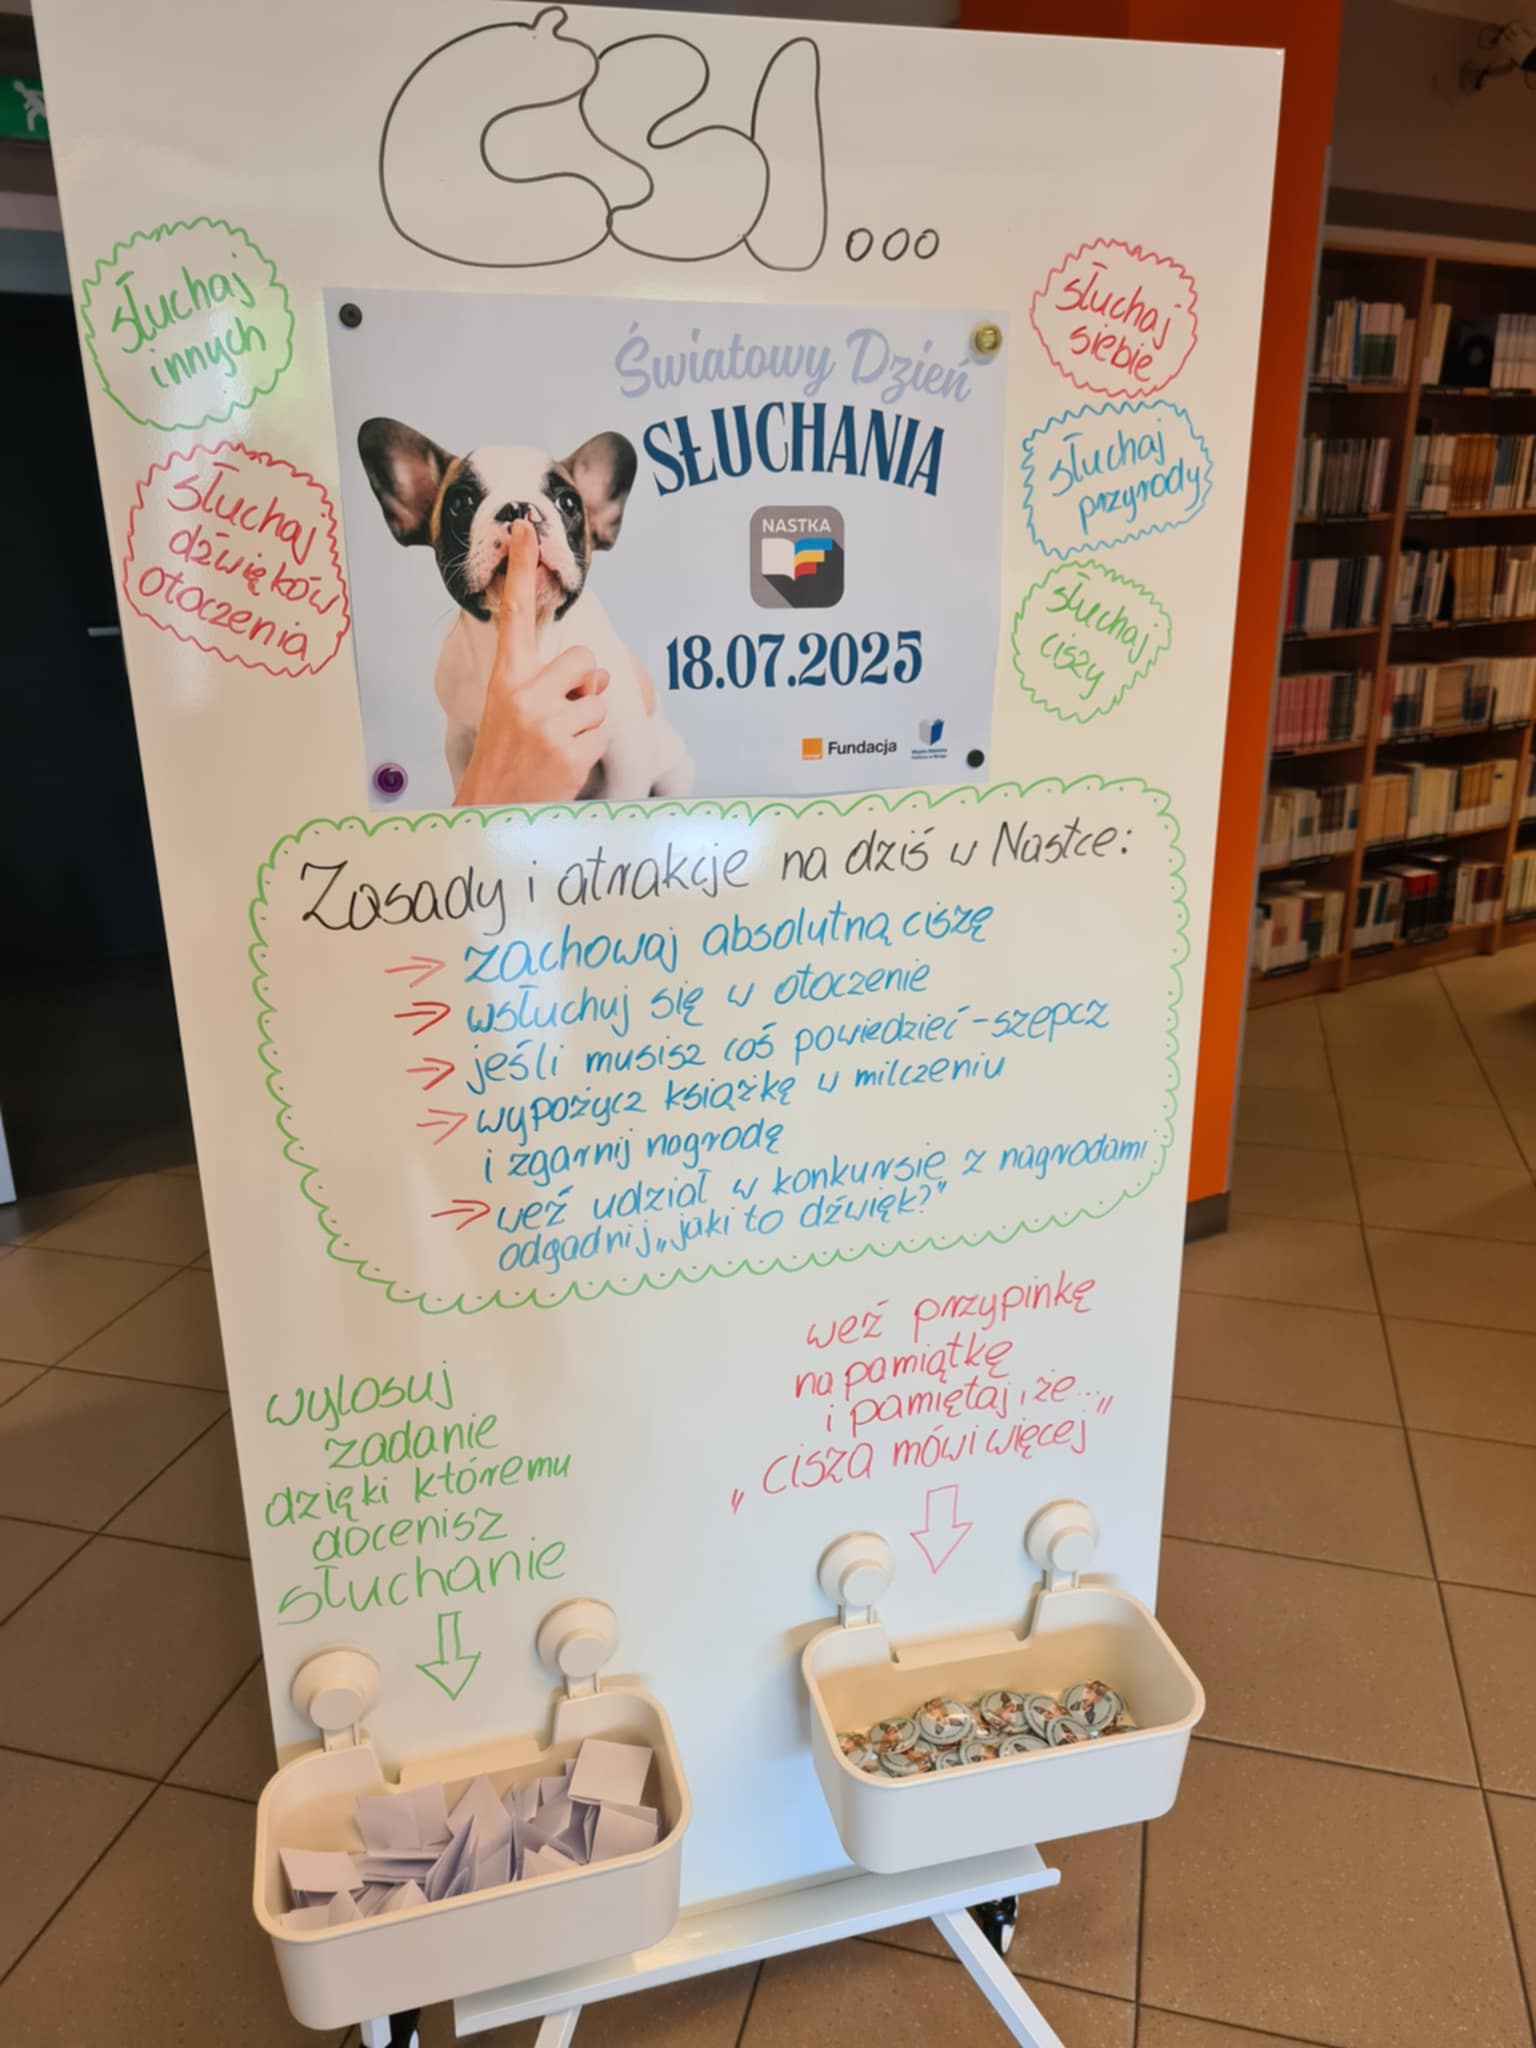 ĆSI...
słuchaj
innych
słuchaj
dźwięków
otoczenia
Światowy Dzień
SŁUCHANIA
NASTKA
18.07.2025
Fundacja
słuchaj
siebie
słuchaj
przyrody
słuchaj
ciszy
Zasady i atrakcje na dziś w Nastce:
→ zachowaj absolutną ciszę
→ wsłuchuj się w otoczenie
→ jeśli musisz coś powiedzieć - szepcz
→ wypożycz książkę w milczeniu
i zgarnij nagrodę
→ weź udział w konkursie z nagrodami
odgadnij „jaki to dźwięk?”
wylosuj
zadanie
dzięki któremu
docenisz
słuchanie
weź przypinkę
na pamiątkę
i pamiętaj, że...
„cisza mówi więcej”